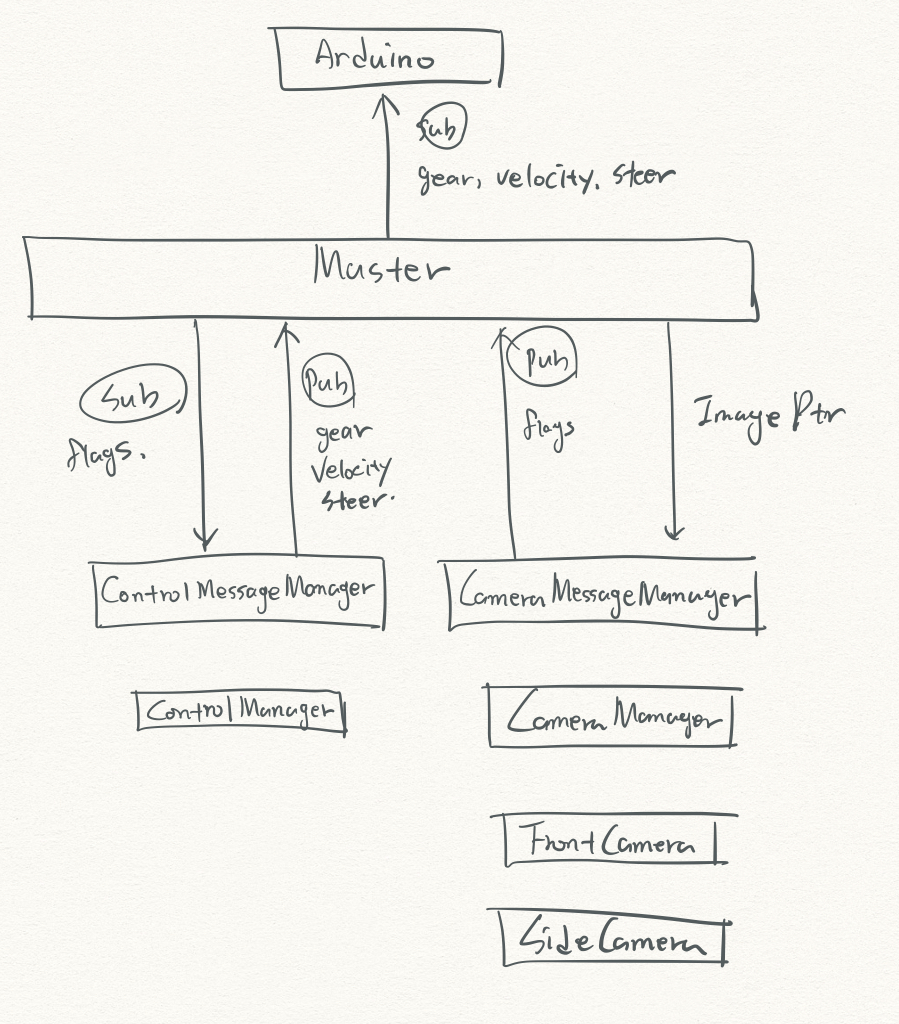 Arduino
Sub
gear, velocity, steer
Master
Sub
flags.
Pub
gear
Velocity
steer.
Pub
flags
Image Ptr
Control Message Manager
Camera Message Manager
Control Manager
Camera Manager
Front Camera
Side Camera